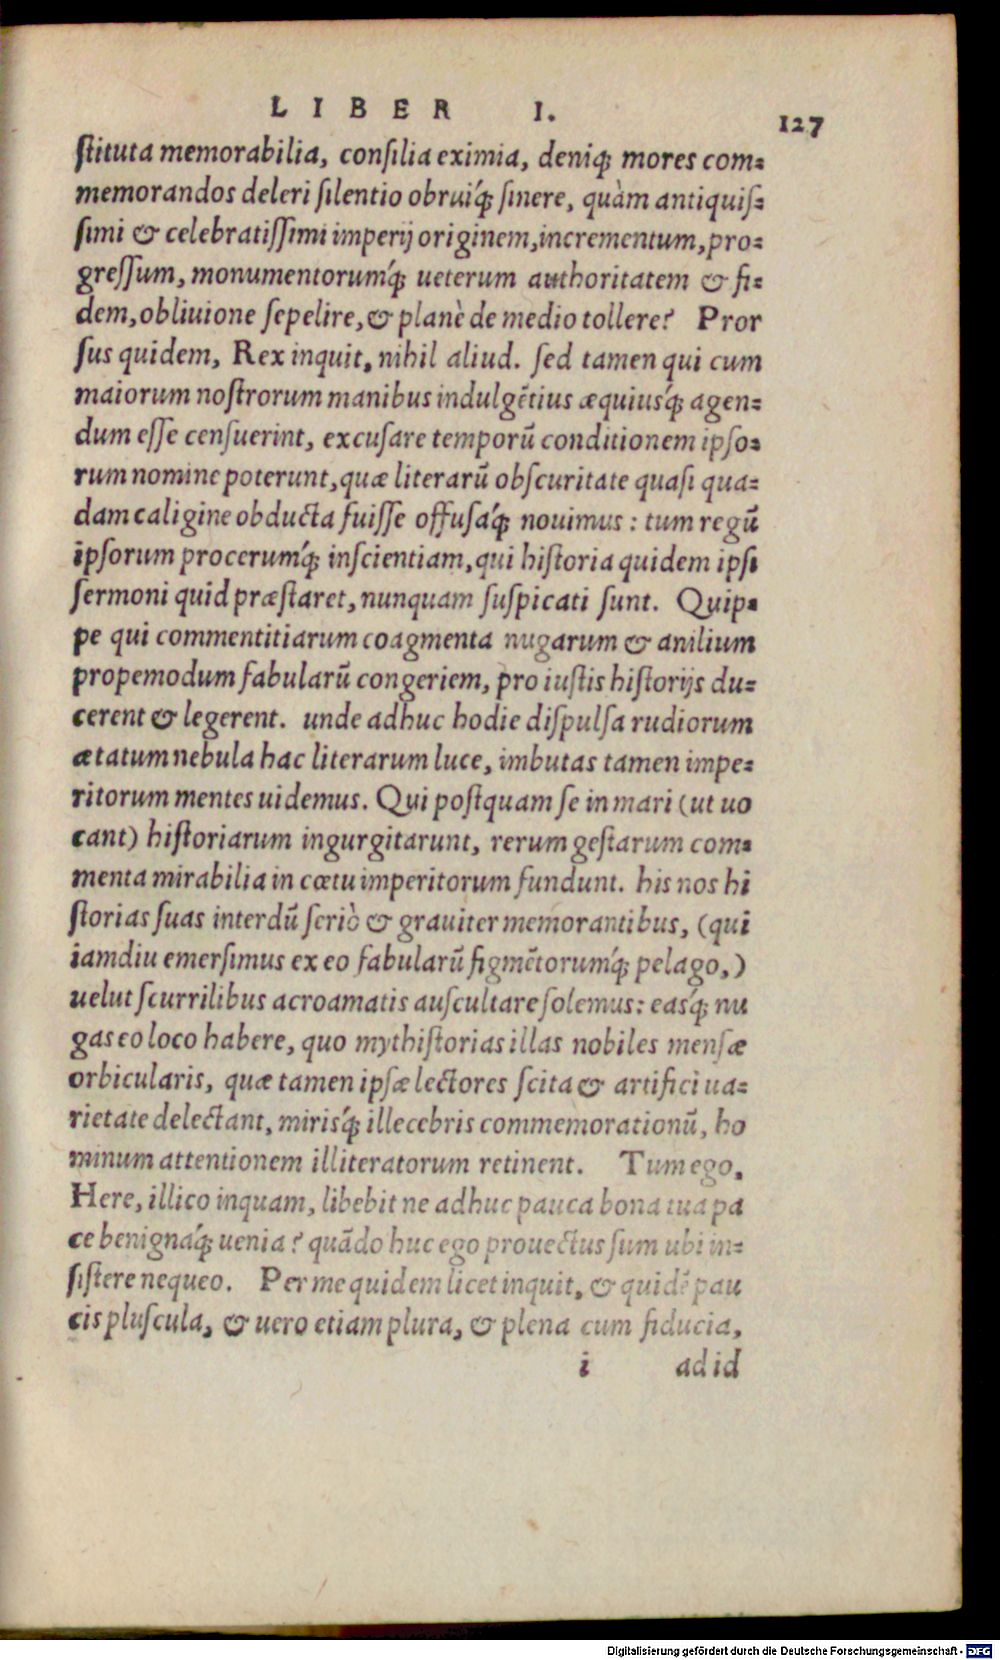 LIBER I. 127
ſtituta memorabilia, conſilia eximia, deniq́; mores com=
memorandos deleri ſilentio obruiq́; ſinere, quàm antiquiſ=
ſimi & celebratiſſimi imperij originem, incrementum, pro=
greſſum, monumentorumq́; ueterum authoritatem & fi=
dem, obliuione ſepelire, & planè de medio tollere? Pror
ſus quidem, Rex inquit, nihil aliud. ſed tamen qui cum
maiorum noſtrorum manibus indulgẽtius æquiusq́; agen=
dum eſſe cenſuerint, excuſare temporũ conditionem ipſo=
rum nomine poterunt, quæ literarũ obſcuritate quaſi qua=
dam caligine obducta fuiſſe offuſaq́; nouimus: tum regũ
ipſorum procerumq́; inſcientiam, qui hiſtoria quidem ipſi
ſermoni quid præſtaret, nunquam ſuſpicati ſunt. Quip=
pe qui commentitiarum coagmenta nugarum & anilium
propemodum fabularũ congeriem, pro iuſtis hiſtorijs du=
cerent & legerent. unde adhuc hodie diſpulſa rudiorum
ætatum nebula hac literarum luce, imbutas tamen impe=
ritorum mentes uidemus. Qui poſtquam ſe in mari (ut uo
cant) hiſtoriarum ingurgitarunt, rerum geſtarum com=
menta mirabilia in cœtu imperitorum fundunt. his nos hi
ſtorias ſuas interdũ ſeriò & grauiter memorantibus, (qui
iamdiu emerſimus ex eo fabularũ figmẽtorumq́; pelago,)
uelut ſcurrilibus acroamatis auſcultare ſolemus: easq́; nu
gas eo loco habere, quo mythiſtorias illas nobiles menſæ
orbicularis, quæ tamen ipſæ lectores ſcita & artifici ua=
rietate delectant, mirisq́; illecebris commemorationũ, ho
minum attentionem illiteratorum retinent. Tum ego,
Here, illico inquam, libebit ne adhuc pauca bona tua pa
ce benignaq́; uenia? quãdo huc ego prouectus ſum ubi in=
ſiſtere nequeo. Per me quidem licet inquit, & quidẽ pau
cis pluſcula, & uero etiam plura, & plena cum fiducia,
i ad id
Digitalisierung gefördert durch die Deutsche Forschungsgemeinschaft - DFG